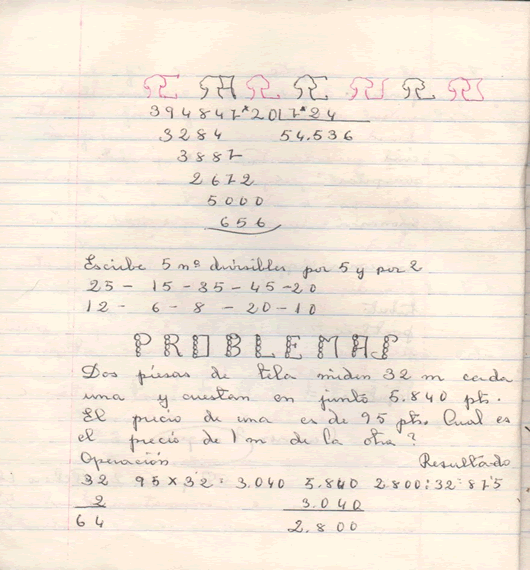 394847'20 17'24
3284 54.536
3887
2672
5000
656
Escribe 5 nº divisibles por 5 y por 2
25 - 15 - 35 - 45 - 20
12 - 6 - 8 - 20 - 10
PROBLEMAS
Dos piesas de tela miden 32 m cada
una y cuestan en junto 5.840 pts.
El precio de una es de 95 pts. Cual es
el precio de 1 m de la otra?
Operación Resultado
32 95 x 32 = 3.040 5.840 2.800:32=87'5
2 3.040
64 2.800